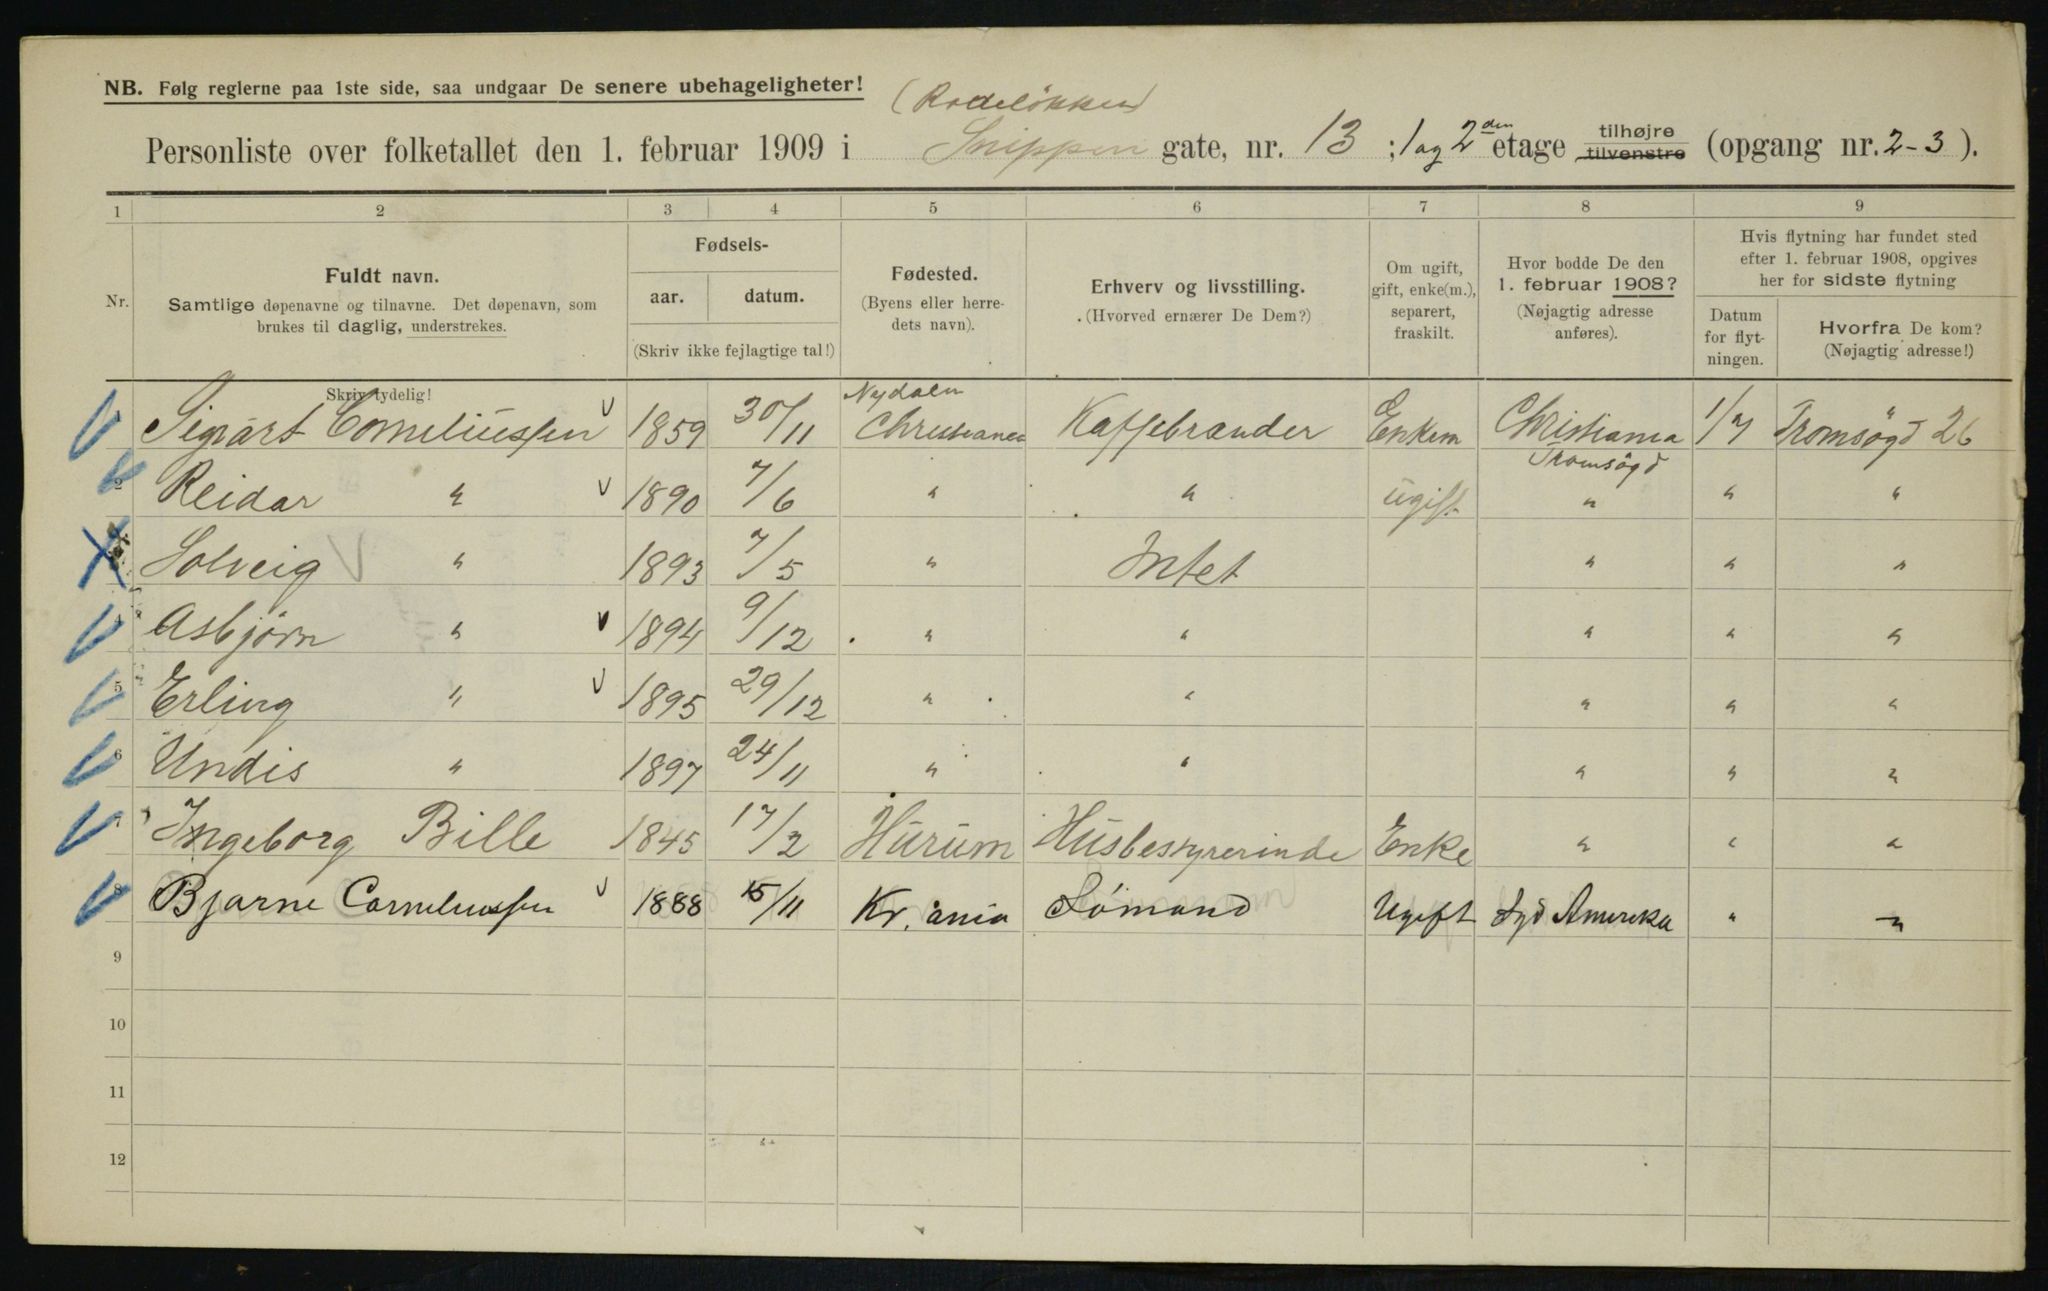 NB. Følg reglerne paa 1ste side, saa undgaar De senere ubehageligheter!
(Rodeløkken)
Personliste over folketallet den 1. februar 1909 i Snippen gate, nr. 13 ; 1 og 2den etage tilhøjre tilvenstre (opgang nr. 2-3 ).
1 2 3 4 5 6 7 8 9
Nr.
Fuldt navn.
Samtlige døpenavne og tilnavne. Det døpenavn, som
brukes til daglig, understrekes.
Skriv tydelig!
Fødsels-
aar. datum.
(Skriv ikke fejlagtige tal!)
Fødested.
(Byens eller herre-
dets navn).
Erhverv og livsstilling.
(Hvorved ernærer De Dem?)
Om ugift,
gift, enke(m.),
separert,
fraskilt.
Hvor bodde De den
1. februar 1908?
(Nøjagtig adresse
anføres).
Hvis flytning har fundet sted
efter 1. februar 1908, opgives
her for sidste flytning
Datum
for flyt-
ningen.
Hvorfra De kom?
(Nøjagtig adresse!)
Nydalen
Sigvart Corneliussen 1859 30/11 Christiania Kaffebrænder Enkem Christiania 1/7 Tromsøgd 26
Tromsøgd
2 Reidar " 1890 7/6 " " ugift " " "
Solveig " 1893 7/5 " Intet " " "
Asbjørn " 1894 9/12 " " " " "
5 Erling " 1895 29/12 " " " " "
6 Undis " 1897 24/11 " " " " "
7 Ingeborg Bille 1845 17/2 Hurum Husbestyrerinde Enke " " "
8 Bjarne Corneliussen 1888 15/11 Kr.ania Sømand Ugift Syd Amerika " "
9
10
11
12